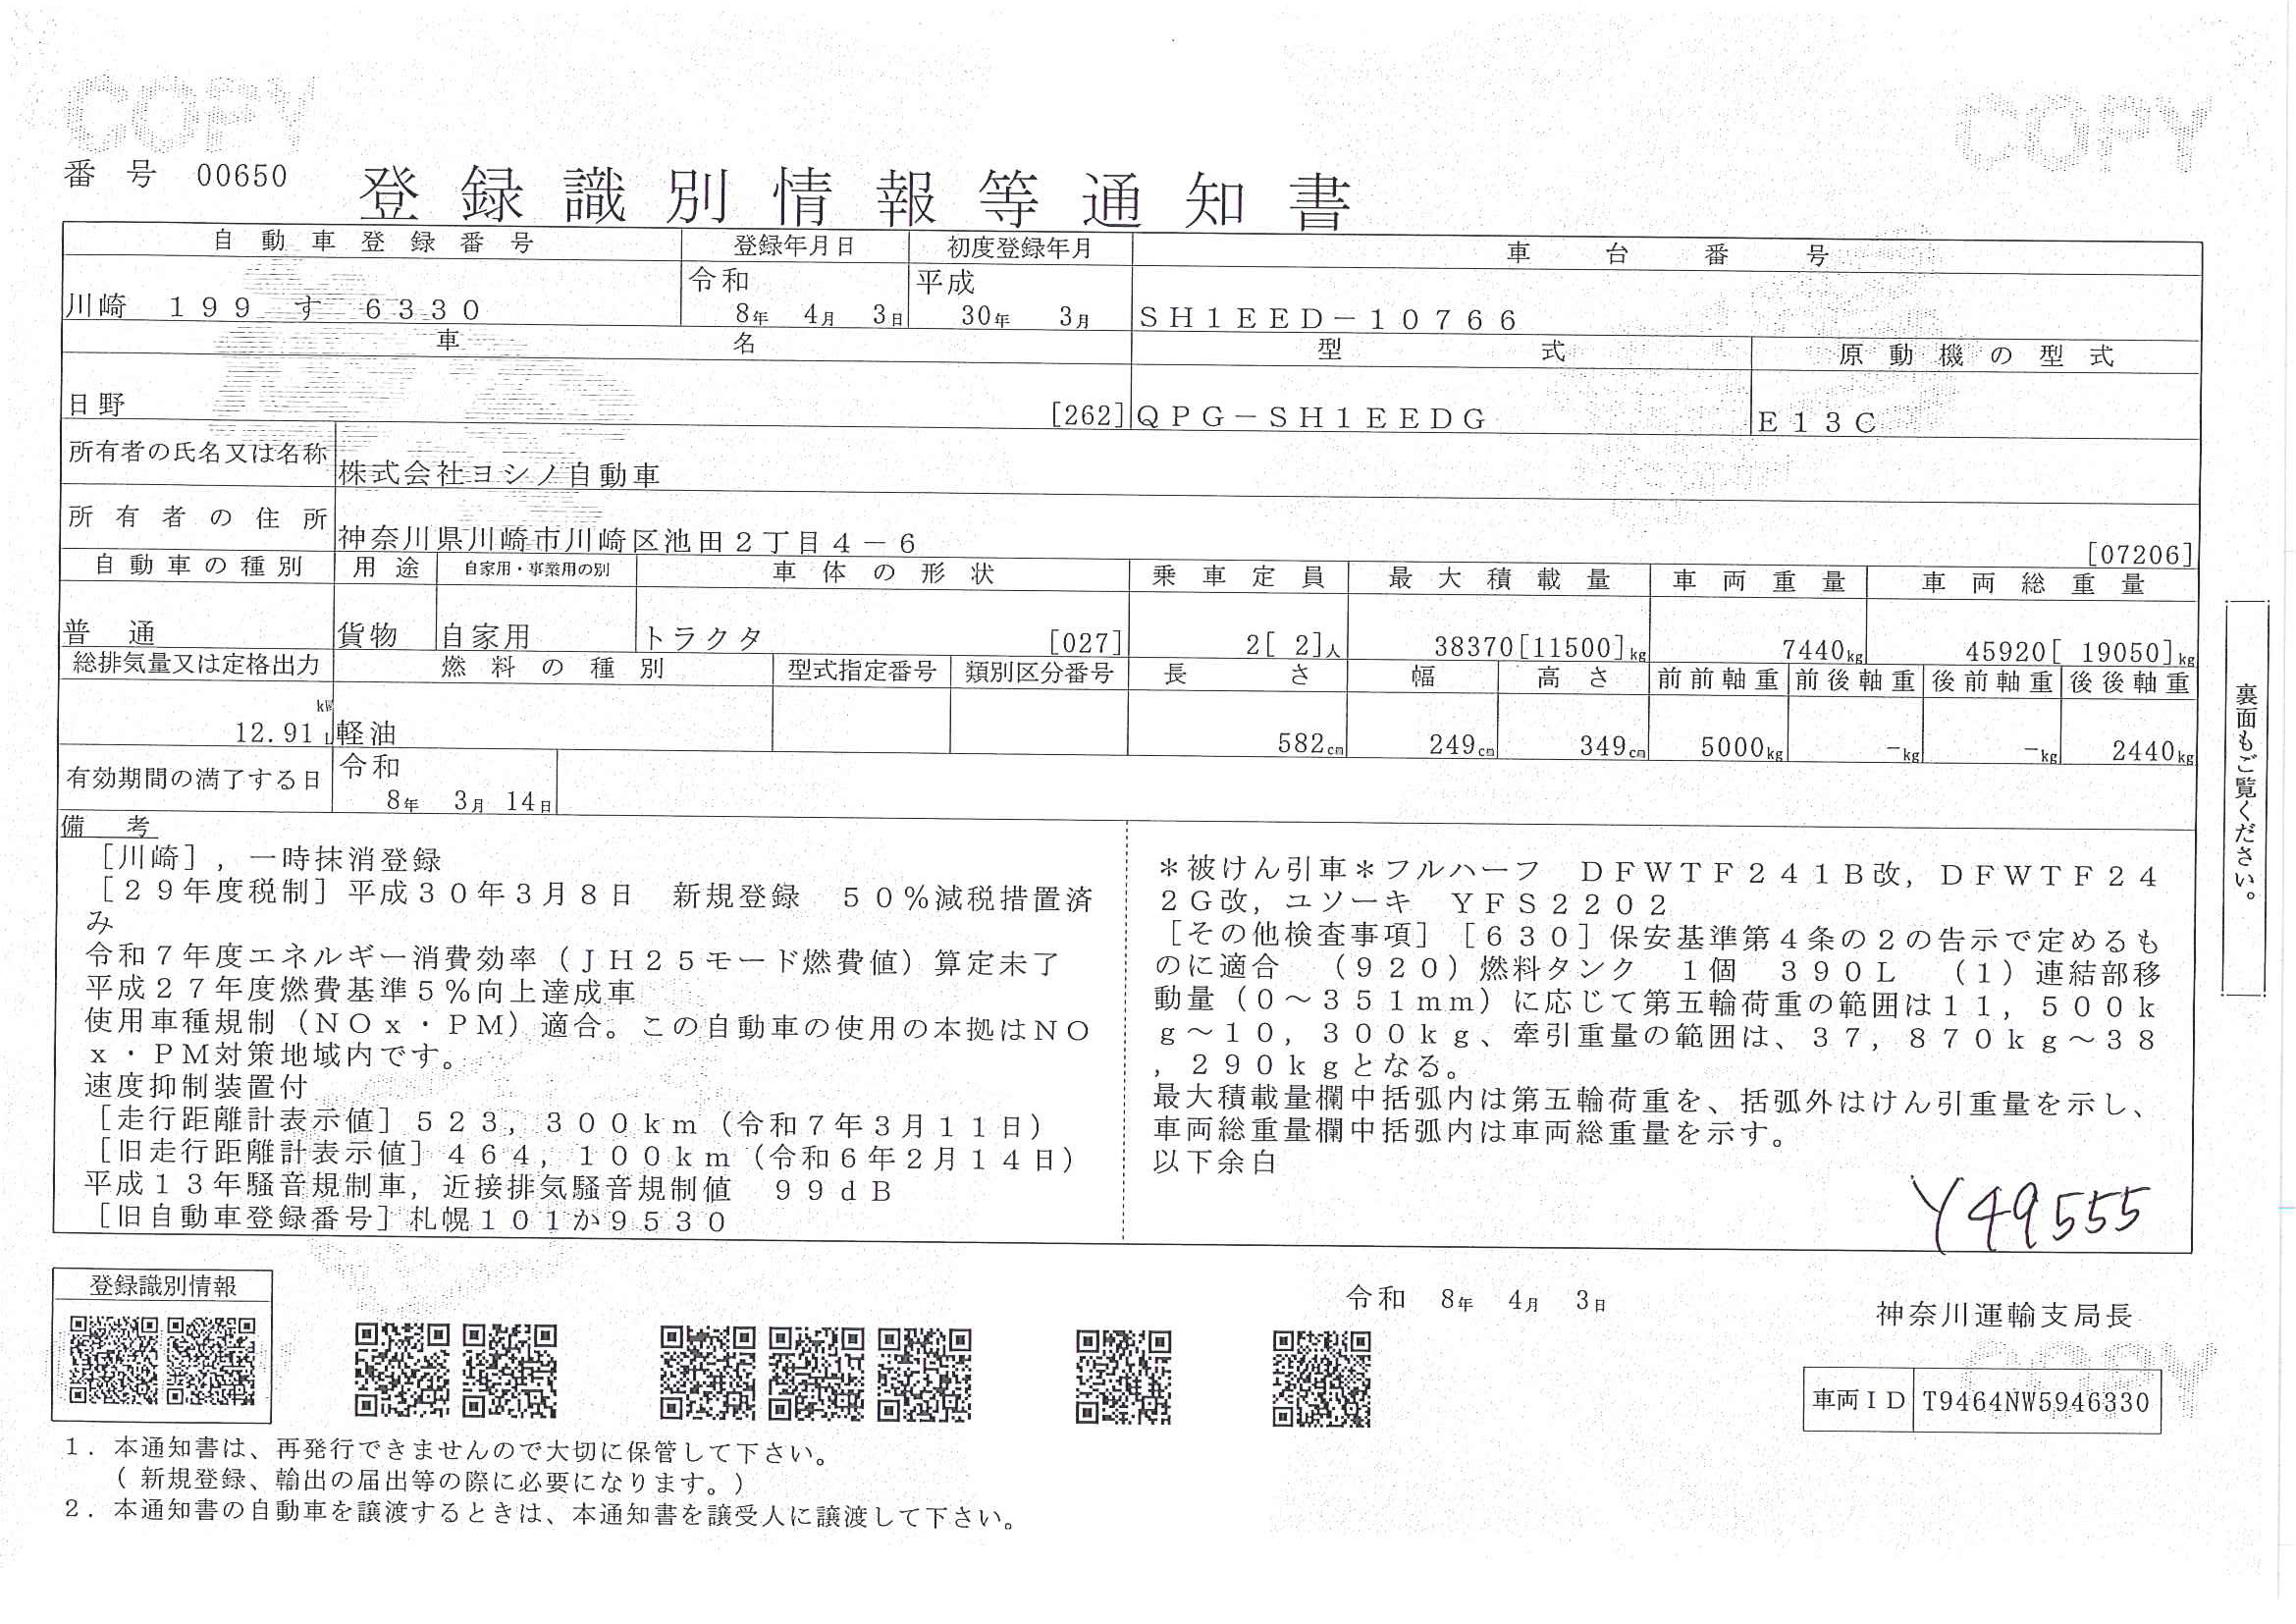 COPY
COPY
番号 00650
登録識別情報等通知書
自動車登録番号 登録年月日 初度登録年月 車台番号
川崎 199 す 6330 令和 8年 4月 3日 平成 30年 3月 SH1EED-10766
車名 型式 原動機の型式
日野 [262] QPG-SH1EEDG E13C
所有者の氏名又は名称 株式会社ヨシノ自動車
所有者の住所 神奈川県川崎市川崎区池田2丁目4-6 [07206]
自動車の種別 用途 自家用・事業用の別 車体の形状 乗車定員 最大積載量 車両重量 車両総重量
普通 貨物 自家用 トラクタ [027] 2[ 2]人 38370[11500]kg 7440kg 45920[ 19050]kg
総排気量又は定格出力 燃料の種別 型式指定番号 類別区分番号 長さ 幅 高さ 前前軸重 前後軸重 後前軸重 後後軸重
kW
12.91 L 軽油 582cm 249cm 349cm 5000kg -kg -kg 2440kg
有効期間の満了する日 令和 8年 3月 14日
備考
[川崎],一時抹消登録
[29年度税制]平成30年3月8日 新規登録 50%減税措置済
み
令和7年度エネルギー消費効率(JH25モード燃費値)算定未了
平成27年度燃費基準5%向上達成車
使用車種規制(NOx・PM)適合。この自動車の使用の本拠はNO
x・PM対策地域内です。
速度抑制装置付
[走行距離計表示値]523,300km(令和7年3月11日)
[旧走行距離計表示値]464,100km(令和6年2月14日)
平成13年騒音規制車,近接排気騒音規制値 99dB
[旧自動車登録番号]札幌101か9530
*被けん引車*フルハーフ DFWTF241B改,DFWTF24
2G改,ユソーキ YFS2202
[その他検査事項][630]保安基準第4条の2の告示で定めるも
のに適合 (920)燃料タンク 1個 390L (1)連結部移
動量(0~351mm)に応じて第五輪荷重の範囲は11,500k
g~10,300kg、牽引重量の範囲は、37,870kg~38
,290kgとなる。
最大積載量欄中括弧内は第五輪荷重を、括弧外はけん引重量を示し、
車両総重量欄中括弧内は車両総重量を示す。
以下余白
Y49555
裏面もご覧ください。
登録識別情報
令和 8年 4月 3日
神奈川運輸支局長
COPY
車両ID T9464NW5946330
1.本通知書は、再発行できませんので大切に保管して下さい。
(新規登録、輸出の届出等の際に必要になります。)
2.本通知書の自動車を譲渡するときは、本通知書を譲受人に譲渡して下さい。